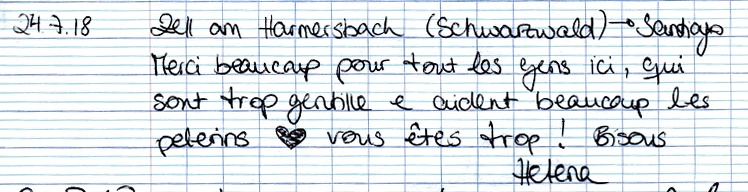 24.7.18 Zell am Harmersbach (Schwarzwald) → Santiago
Merci beaucoup pour tout les gens ici, qui
sont trop gentille e aident beaucoup les
peterins ♥ vous êtes trop! Bisous
Helena